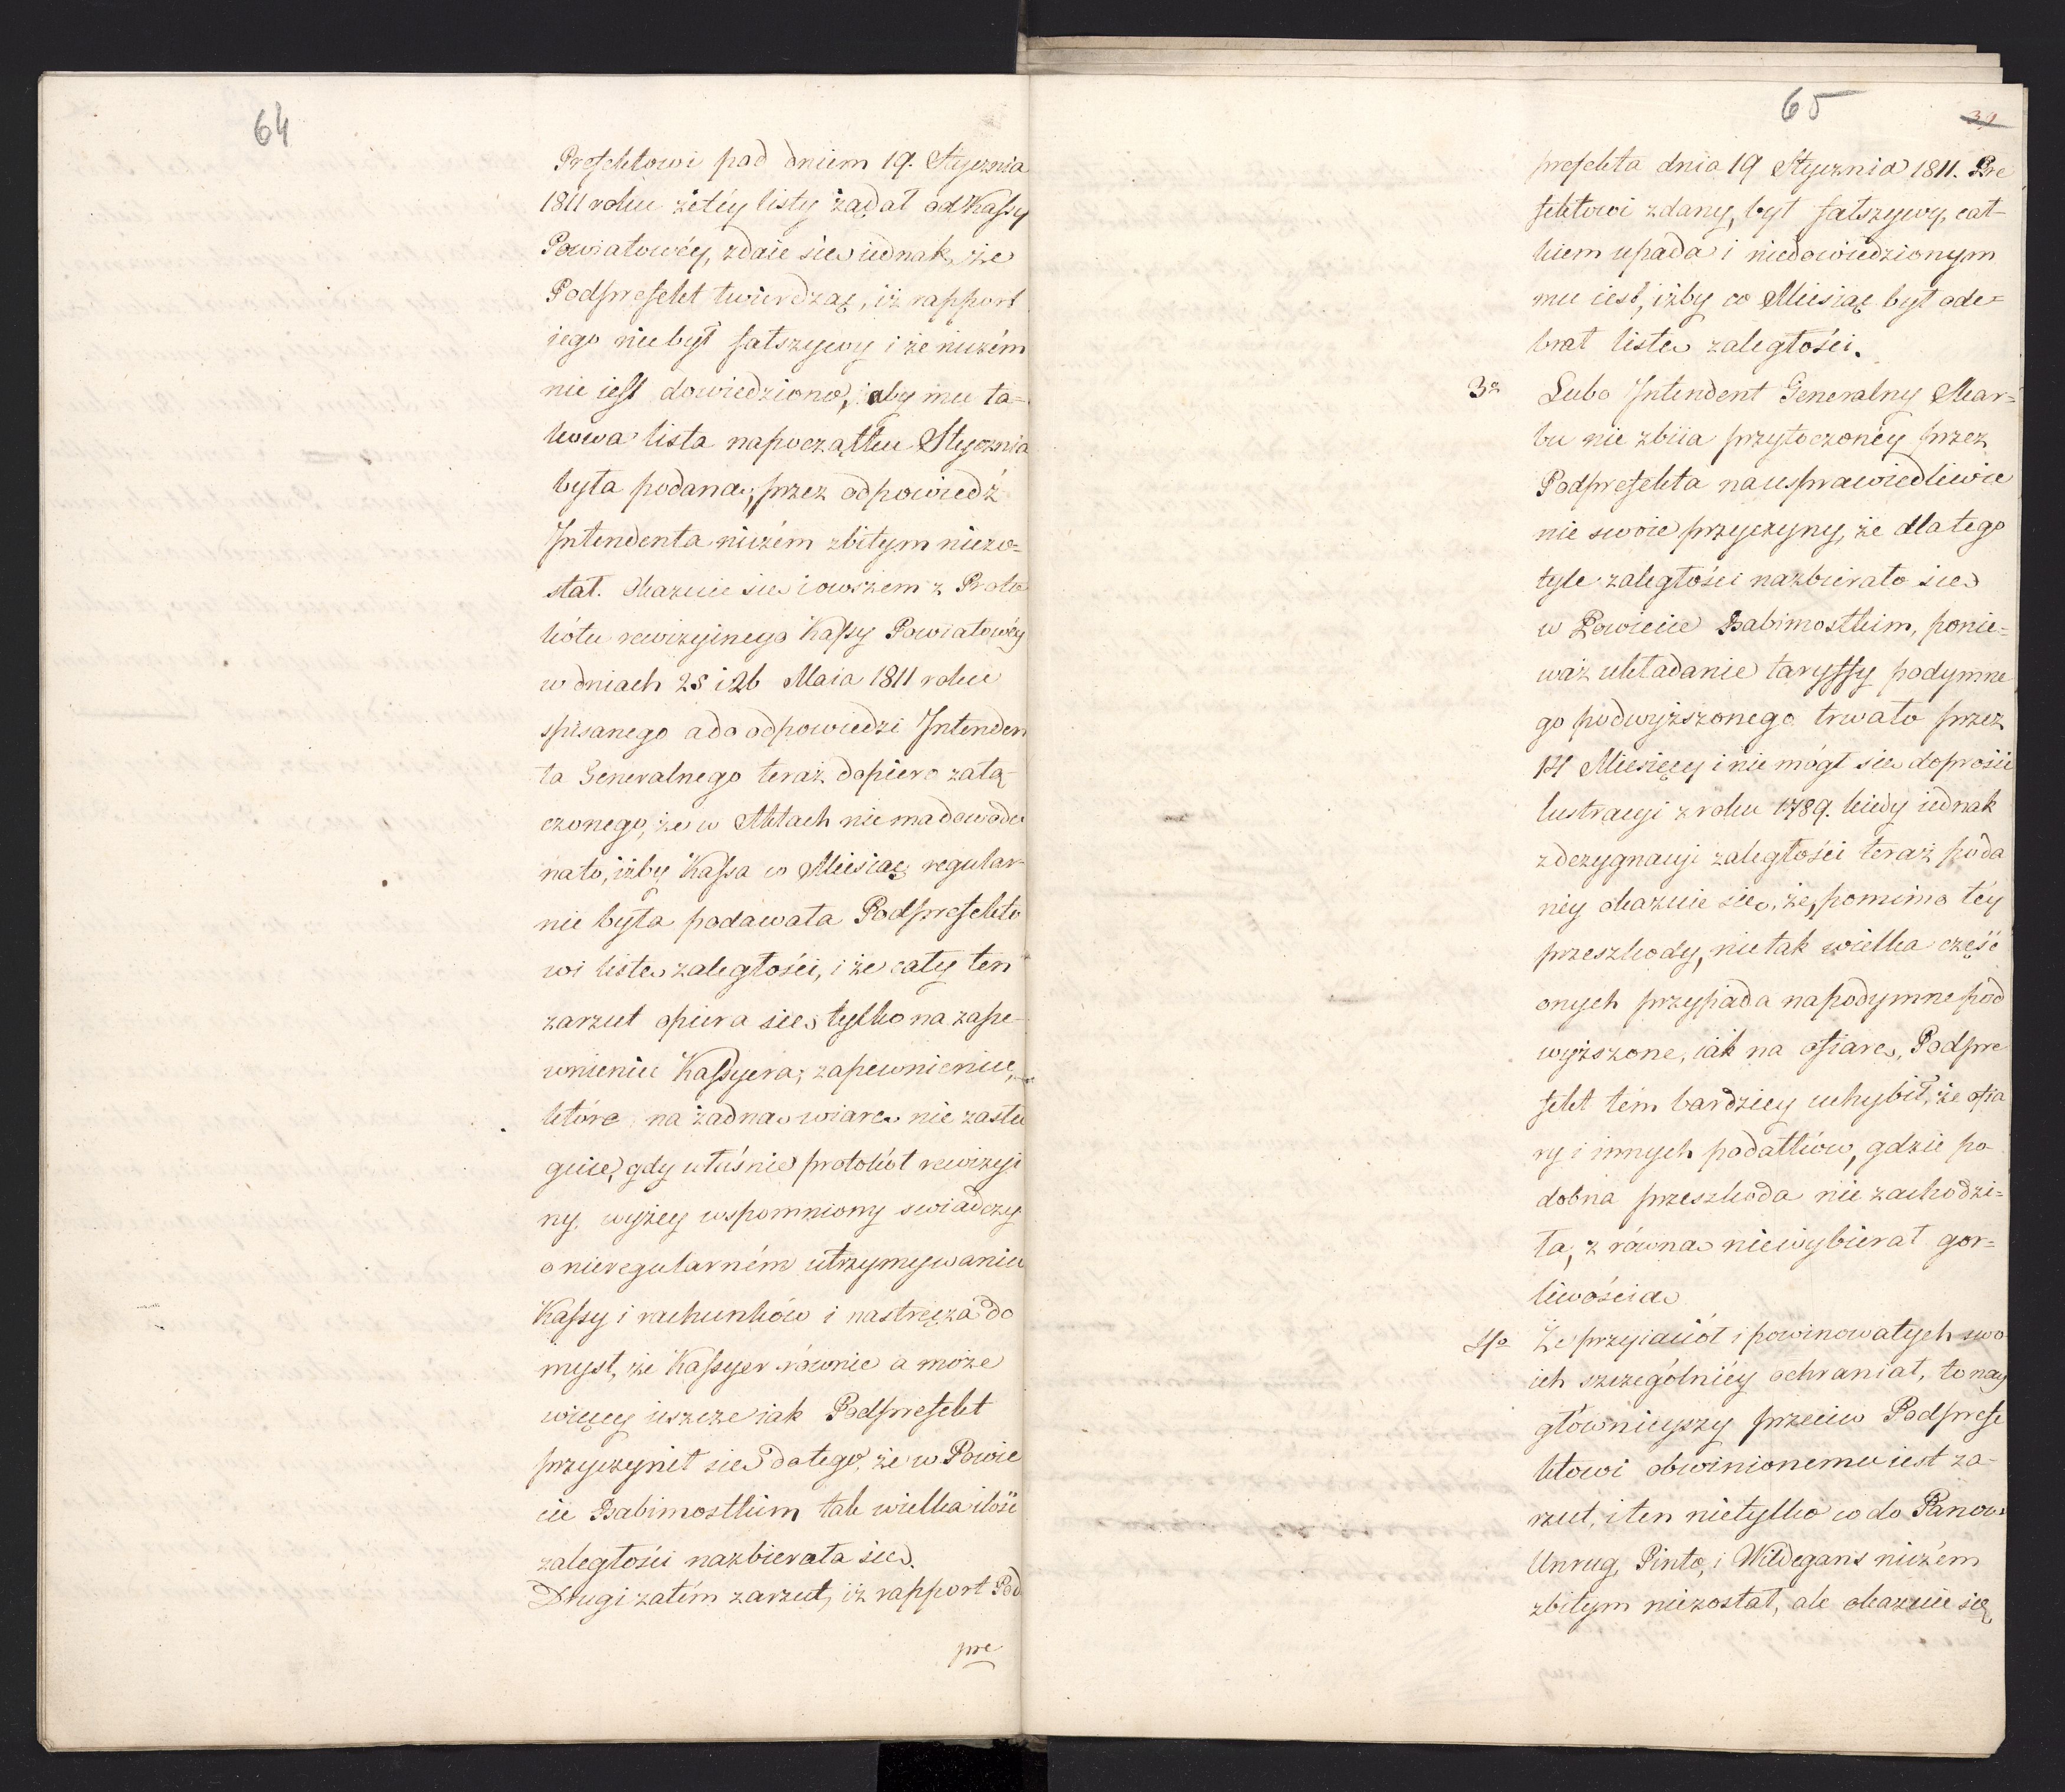 64
Prefektowi pod dniem 19. Stycznia
1811 roku żetéy listy żądał od Kassy
Powiatowéy, zdaie się iednak, że
Podprefekt twierdząc, iż rapport
iego niebył fałszywy i że niczém
nie iest dowiedziono, aby mu ta=
kowa lista napoczątku Stycznia
była podana, przez odpowiedź
Intendenta niczém zbitym niezo=
stał. Okazuie się iowszem z Proto
kółu rewizyinego Kassy Powiatowéy
w dniach 25 i 26 Maia 1811 roku
spisanego a do odpowiedzi Intenden
ta Generalnego teraz dopiero załą-
czonego, że w Aktach nie ma dowodu
nato, iżby Kassa co Miesiąc regular-
nie była podawała Podprefekto
wi listę zaległości, i że cały ten
zarzut opiera się tylko na zape-
wnieniu Kassyera; zapewnieniu,
które na żadną wiarę nie zasłu
guie, gdy właśnie protokół rewizyi
ny wyżey wspomniony swiadczy
o nieregularném utrzymywaniu
Kassy i rachunków i nastręcza do
mysł, że Kassyer równie a może
więcey ieszcze iak Podprefekt
przyczynił się do tego, że w Powie
cie Babimostkim tak wielka ilość
zaległości nazbierała się.
Drugi zatém zarzut, iż rapport Pod
pre
65
39
prefekta dnia 19 Stycznia 1811. Pre
fektowi zdany, był fałszywy, cał-
kiem upada i niedowiedzionym
mu iest, iżby co Miesiąc był ode=
brał listę zaległości.
3o Lubo Intendent Generalny Skar=
bu nie zbiia przytoczonéy przez
Podprefekta na usprawiedliwie
nie swoie przyczyny, że dla tego
tyle zaległości nazbierało się
w Powiecie Babimostkim, ponie=
waż układanie taryffy podymne
go podwyższonego trwało przez
14 Miesięcy i nie mógł się doprosić
lustracyi z roku 1789. kiedy iednak
z dezygnacyi zaległości teraz poda
néy okazuie się, że, pomimo téy
przeszkody, nie tak wielka część
onych przypada na podymne pod
wyższone, iak na ofiarę, Podpre
fekt tém bardziey uchybił, że ofia
ry i innych podatków, gdzie po
dobna przeszkoda nie zachodzi=
ła, z równą niewybierał gor=
liwością
4o Że przyiaciół i powinowatych swo
ich szczególniéy ochraniał, to nay
głównieyszy przeciw Podprefe
ktowi obwinionemu iest za-
rzut, i ten nietylko co do Panów
Unrug, Pinto, i Wildegans niczém
zbitym niezostał, ale okazuie się